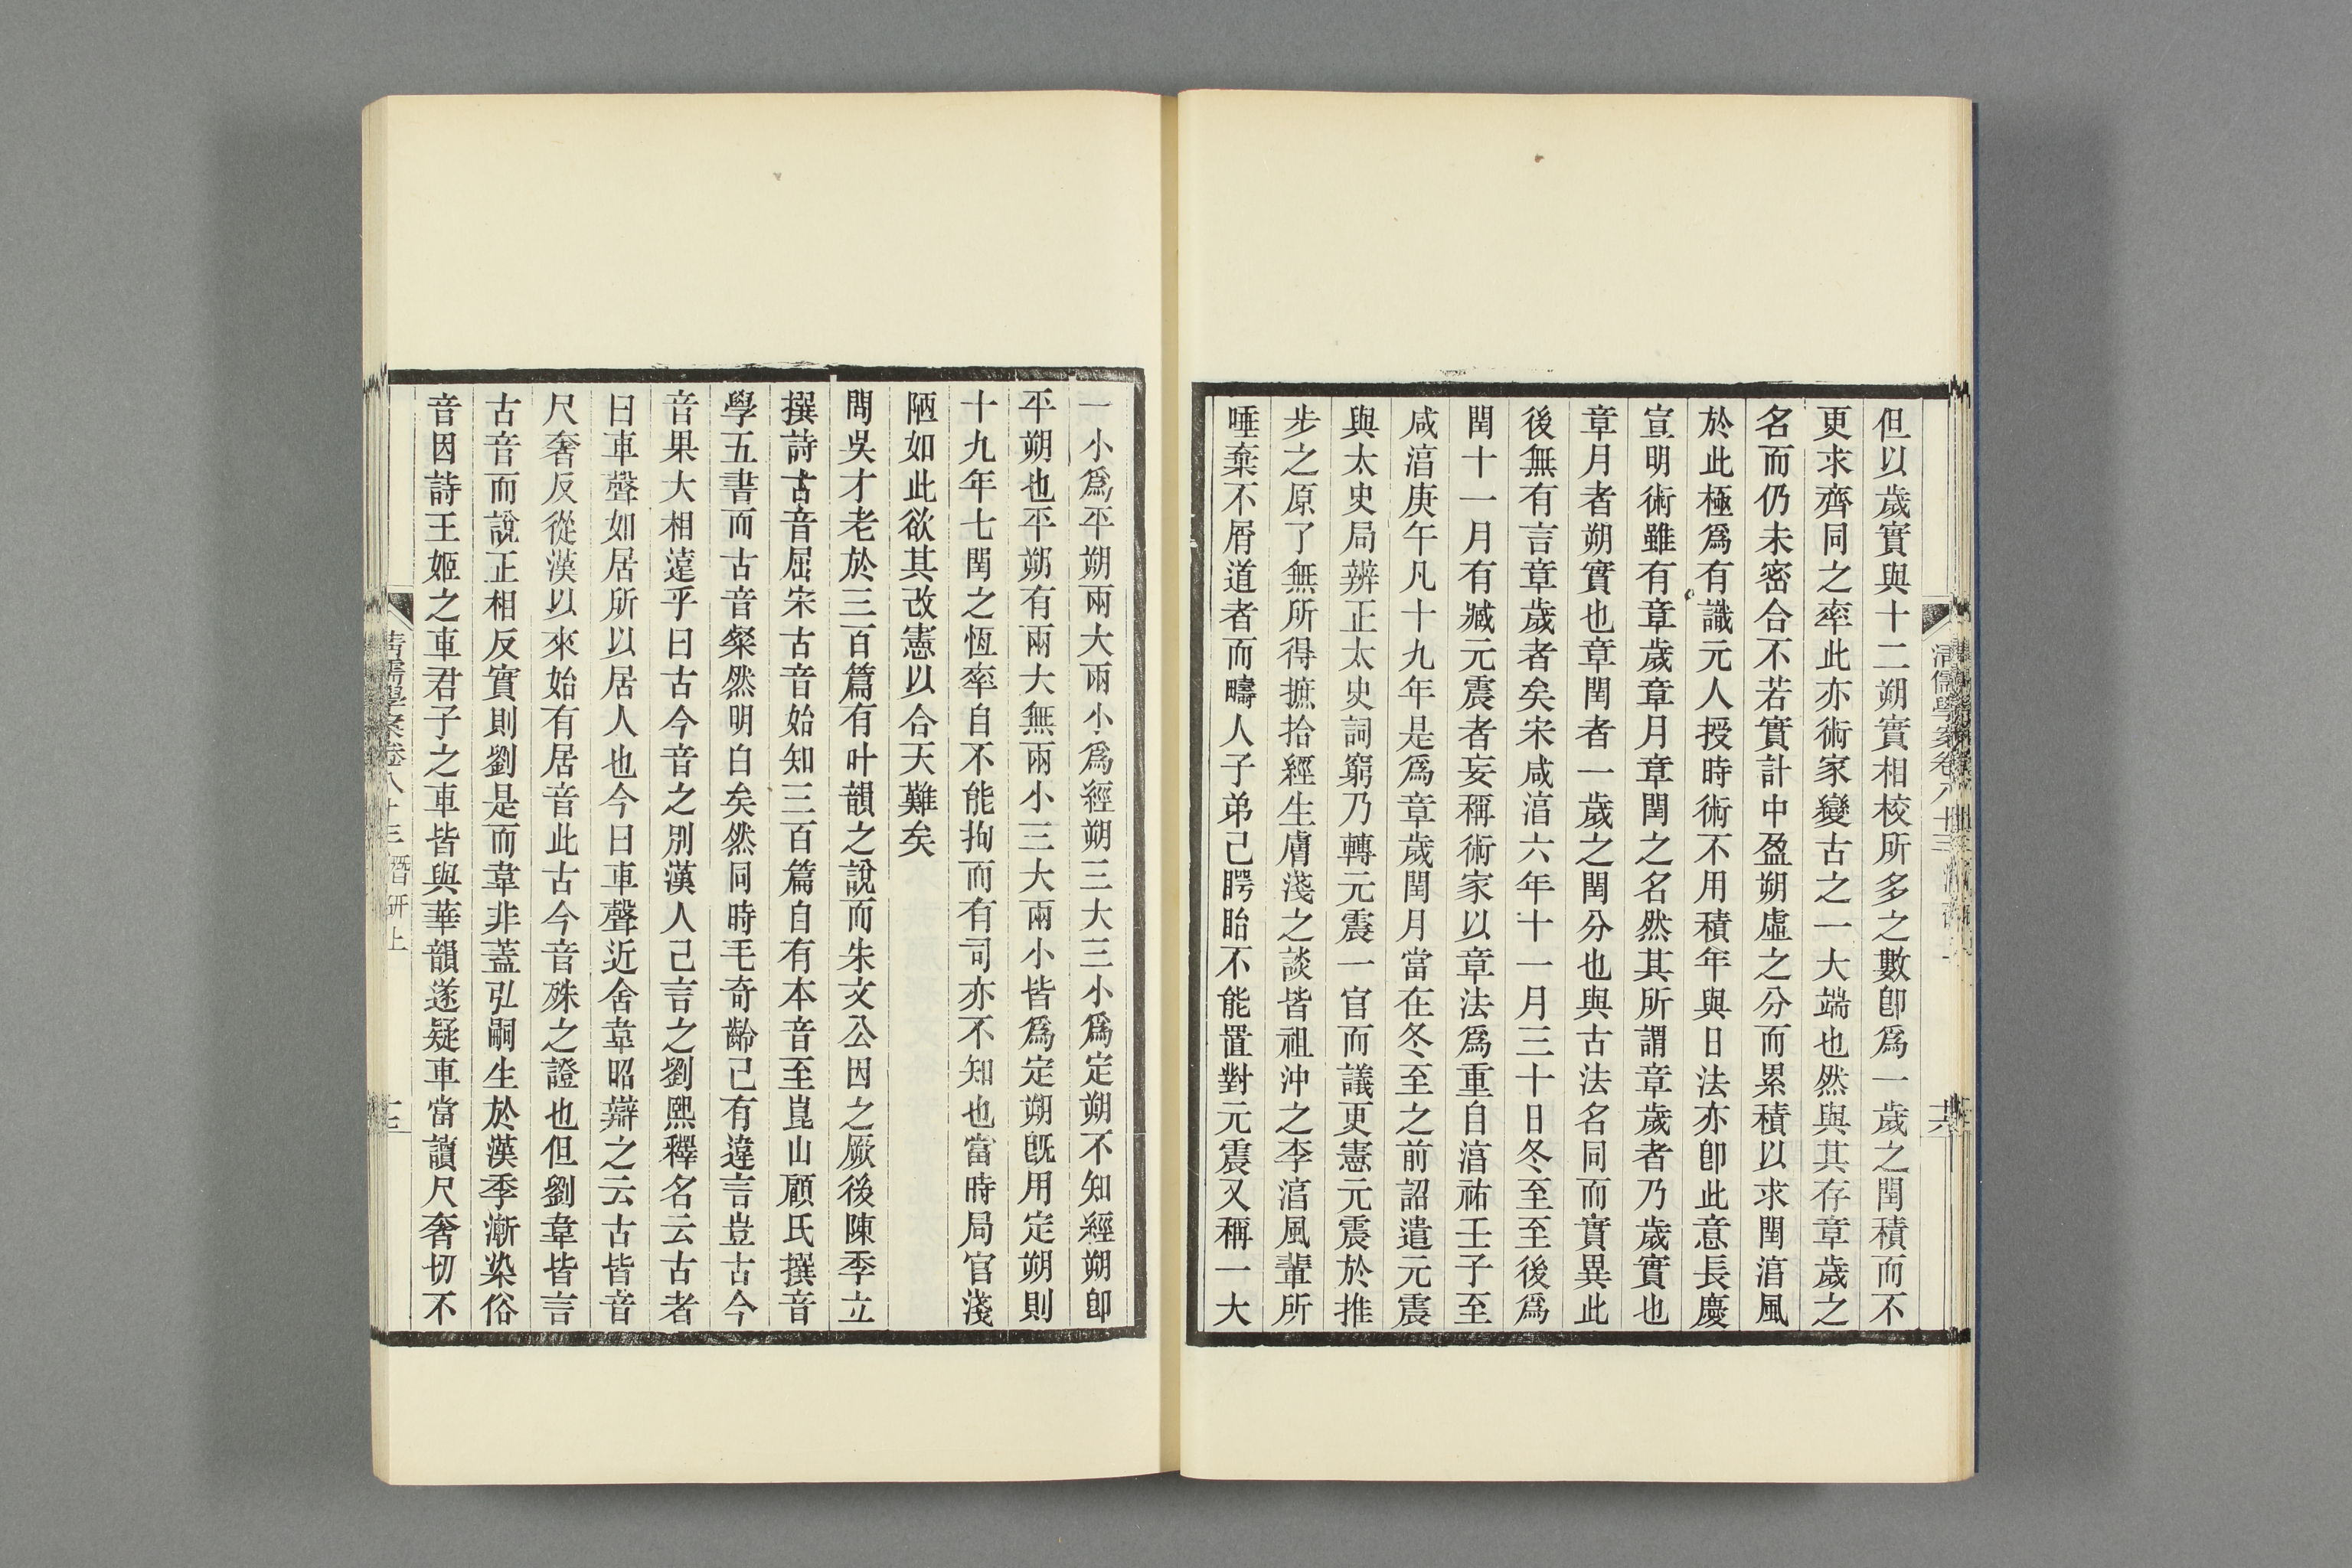 但以歲實與十二朔實相校所多之數卽爲一歲之閏積而不
更求齊同之率此亦術家變古之一大端也然與其存章歲之
名而仍未密合不若實計中盈朔虛之分而累積以求閏湻風
於此極爲有識元人授時術不用積年與日法亦卽此意長慶
宣明術雖有章歲章月章閏之名然其所謂章歲者乃歲實也
章月者朔實也章閏者一歲之閏分也與古法名同而實異此
後無有言章歲者矣宋咸湻六年十一月三十日冬至至後爲
閏十一月有臧元震者妄稱術家以章法爲重自湻祐壬子至
咸湻庚午凡十九年是爲章歲閏月當在冬至之前詔遣元震
與太史局辨正太史詞窮乃轉元震一官而議更憲元震於推
步之原了無所得摭拾經生膚淺之談皆祖沖之李湻風輩所
唾棄不屑道者而疇人子弟己瞪眙不能置對元震又稱一大
一小爲平朔兩大兩小爲經朔三大三小爲定朔不知經朔卽
平朔也平朔有兩大無兩小三大兩小皆爲定朔旣用定朔則
十九年七閏之恆率自不能拘而有司亦不知也當時局官淺
陋如此欲其改憲以合天難矣
問吳才老於三百篇有叶韻之說而朱文公因之厥後陳季立
撰詩古音屈宋古音始知三百篇自有本音至崑山顧氏撰音
學五書而古音粲然明白矣然同時毛奇齡己有違言豈古今
音果大相遠乎曰古今音之別漢人己言之劉熙釋名云古者
曰車聲如居所以居人也今曰車聲近舍韋昭辯之云古皆音
尺奢反從漢以來始有居音此古今音殊之證也但劉韋皆言
古音而說正相反實則劉是而韋非蓋弘嗣生於漢季漸染俗
音因詩王姬之車君子之車皆與華韻遂疑車當讀尺奢切不
清儒學案卷八十三 潛研上